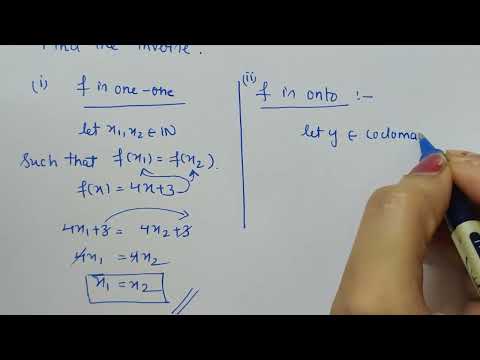 Find the inverse.
(i) f is one-one
let x₁, x₂ ∈ IN
Such that f(x₁) = f(x₂).
f(x) = 4x+3
4x₁+3 = 4x₂+3
4x₁ = 4x₂
x₁ = x₂
(ii) f is onto :-
let y ∈ codoma